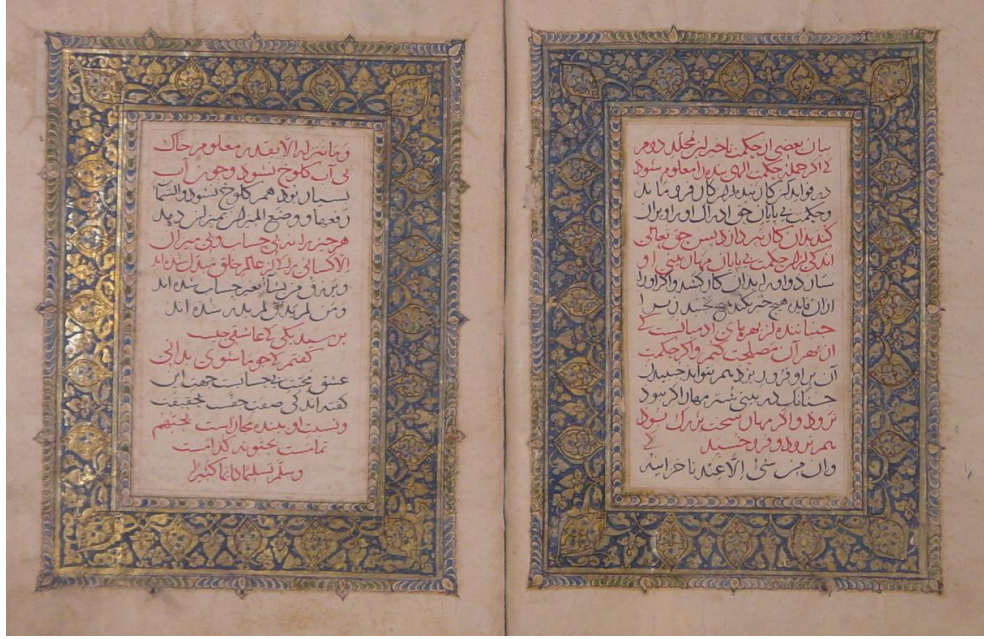 بیان بعضی از حکمت تاخیر این مجلد دوم
که اگر جمله حکمت الهی بنده را معلوم شود
در فواید آن کار بنده از آن کار فرو ماند
و حکمت بی پایان حق ادراک او را ویران
کند بدان کار نپردازد پس حق تعالی
اندکی از آن حکمت بی پایان مهار بینی او
سازد و او را بدان کار کشد و اگر او را
از آن فایده هیچ خبر نکند هیچ نجنبد زیرا
جنباننده از بهرهای آدمیانست که
از بهر آن مصلحت کنیم و اگر حکمت
آن بر او فرو ریزد هم نتواند جنبیدن
چنانک در بینی شتر مهار اگر نبود
نرود و اگر مهار سخت بزرگ شود
هم نرود و فرو خسبد که
وان من شی الا عندنا خزاینه
وما ننزله الا بقدر معلوم خاک
بی آب کلوخ نشود و چون آب
بسیار بود هم کلوخ نشود والسما
رفعها و وضع المیزان بمیزان دهد
هر چیز را نه بی حساب و بی میزان
الا کسانی را که از عالم خلق مبدل شده اند
و یرزق من یشا بغیر حساب شده اند
ومن لم یذق لم یدر شده اند
پرسید یکی که عاشقی چیست
گفتم که چو ما شوی بدانی
عشق محبت بی حسابست جهت این
گفته اند که صفت حقست بحقیقت
و نسبت او ببنده مجاز است یحبهم
تمامست یحبونه کدامست
وسلم تسلیما دایما کثیرا